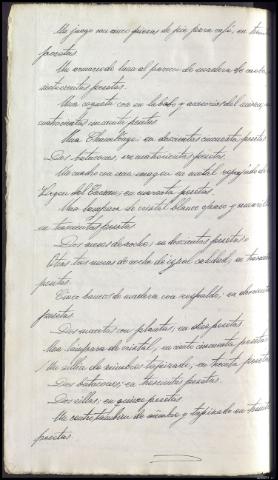 Un juego con cinco piezas de pie para café, en treinta
pesetas.
Un armario de luna al parecer de madera de caoba
pesetas.
Una coqueta con su lavabo y
cuatrocientas cincuenta pesetas.
Una en doscientas cincuenta pesetas.
Dos butacones, en cuatrocientas pesetas.
Un cuadro con una imagen en metal repujado de la
Virgen del Carmen; en cuarenta pesetas.
Una lámpara de cristal blanco opaco y amarillo
en trescientas pesetas.
Dos mesas de noche; en doscientas pesetas.
Otras dos mesas de noche de igual calidad, en
pesetas.
Cinco bancos de madera con respaldo; en doscientas
pesetas.
Dos macetas con plantas; en diez pesetas.
Una lámpara de cristal, en ciento cincuenta pesetas
Un sillón de mimbre tapizado; en treinta pesetas
Dos butacones; en trescientas pesetas.
Dos sillas; en quince pesetas.
Un centro también de mimbre y tapizado en treinta
pesetas.